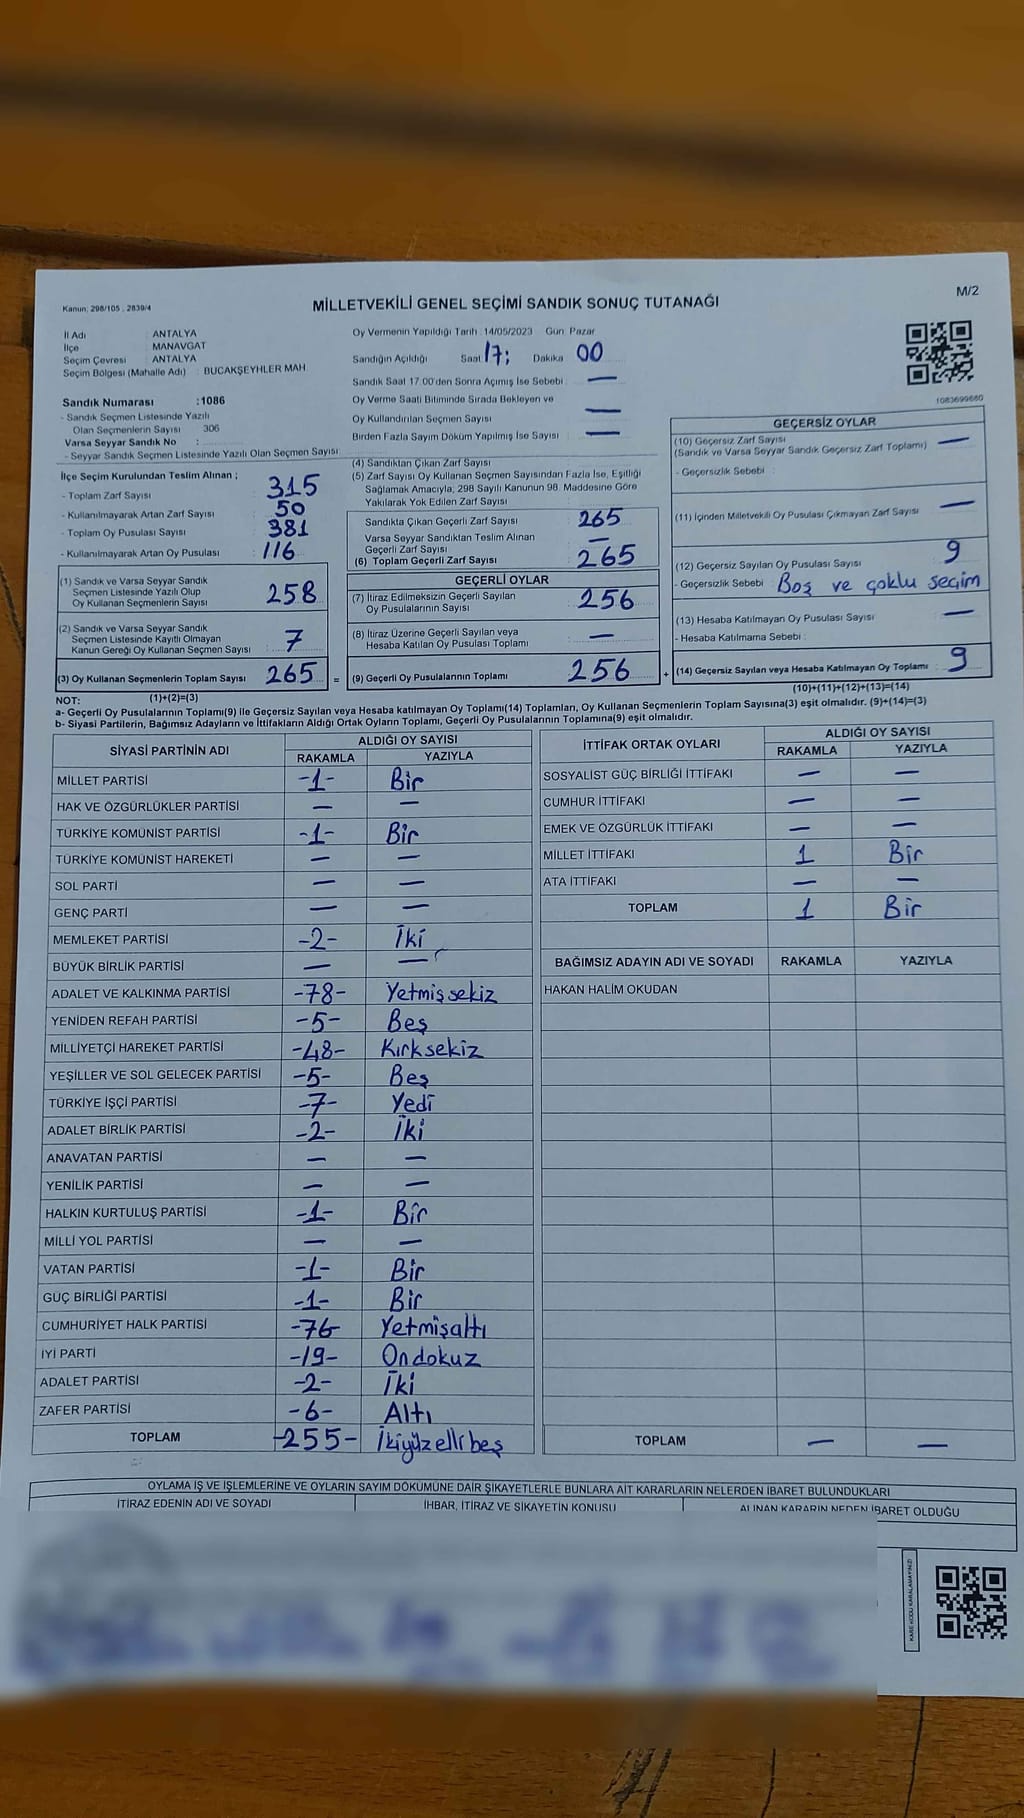 M/2
Kanun: 298/105 , 2839/4
MİLLETVEKİLİ GENEL SEÇİMİ SANDIK SONUÇ TUTANAĞI
İl Adı : ANTALYA
İlçe : MANAVGAT
Seçim Çevresi : ANTALYA
Seçim Bölgesi (Mahalle Adı) : BUCAKŞEYHLER MAH.
Sandık Numarası : 1086
- Sandık Seçmen Listesinde Yazılı
Olan Seçmenlerin Sayısı : 306
Varsa Seyyar Sandık No :
- Seyyar Sandık Seçmen Listesinde Yazılı Olan Seçmen Sayısı:
Oy Vermenin Yapıldığı Tarih :14/05/2023 Gün: Pazar
Sandığın Açıldığı Saat 17; Dakika 00
Sandık Saat 17:00'den Sonra Açımış İse Sebebi : —
Oy Verme Saati Bitiminde Sırada Bekleyen ve
Oy Kullandırılan Seçmen Sayısı —
Birden Fazla Sayım Döküm Yapılmış İse Sayısı : —
1083699660
İlçe Seçim Kurulundan Teslim Alınan ;
- Toplam Zarf Sayısı : 315
- Kullanılmayarak Artan Zarf Sayısı : 50
- Toplam Oy Pusulası Sayısı : 381
- Kullanılmayarak Artan Oy Pusulası : 116
(1) Sandık ve Varsa Seyyar Sandık
Seçmen Listesinde Yazılı Olup
Oy Kullanan Seçmenlerin Sayısı : 258
(2) Sandık ve Varsa Seyyar Sandık
Seçmen Listesinde Kayıtlı Olmayan
Kanun Gereği Oy Kullanan Seçmen Sayısı : 7
(3) Oy Kullanan Seçmenlerin Toplam Sayısı : 265
(1)+(2)=(3)
(4) Sandıktan Çıkan Zarf Sayısı
(5) Zarf Sayısı Oy Kullanan Seçmen Sayısından Fazla İse, Eşitliği
Sağlamak Amacıyla; 298 Sayılı Kanunun 98. Maddesine Göre
Yakılarak Yok Edilen Zarf Sayısı :
Sandıkta Çıkan Geçerli Zarf Sayısı : 265
Varsa Seyyar Sandıktan Teslim Alınan
Geçerli Zarf Sayısı : —
(6) Toplam Geçerli Zarf Sayısı : 265
GEÇERLİ OYLAR
(7) İtiraz Edilmeksizin Geçerli Sayılan
Oy Pusulalarının Sayısı : 256
(8) İtiraz Üzerine Geçerli Sayılan veya
Hesaba Katılan Oy Pusulası Toplamı : —
= (9) Geçerli Oy Pusulalarının Toplamı : 256
GEÇERSİZ OYLAR
(10) Geçersiz Zarf Sayısı
(Sandık ve Varsa Seyyar Sandık Geçersiz Zarf Toplamı) : —
- Geçersizlik Sebebi :
(11) İçinden Milletvekili Oy Pusulası Çıkmayan Zarf Sayısı : —
(12) Geçersiz Sayılan Oy Pusulası Sayısı : 9
- Geçersizlik Sebebi : Boş ve çoklu seçim
(13) Hesaba Katılmayan Oy Pusulası Sayısı : —
- Hesaba Katılmama Sebebi :
+ (14) Geçersiz Sayılan veya Hesaba Katılmayan Oy Toplamı : 9
(10)+(11)+(12)+(13)=(14)
NOT:
a- Geçerli Oy Pusulalarının Toplamı(9) ile Geçersiz Sayılan veya Hesaba katılmayan Oy Toplamı(14) Toplamları, Oy Kullanan Seçmenlerin Toplam Sayısına(3) eşit olmalıdır. (9)+(14)=(3)
b- Siyasi Partilerin, Bağımsız Adayların ve İttifakların Aldığı Ortak Oyların Toplamı, Geçerli Oy Pusulalarının Toplamına(9) eşit olmalıdır.
SİYASİ PARTİNİN ADI ALDIĞI OY SAYISI
RAKAMLA YAZIYLA
MİLLET PARTİSİ -1- Bir
HAK VE ÖZGÜRLÜKLER PARTİSİ — —
TÜRKİYE KOMÜNİST PARTİSİ -1- Bir
TÜRKİYE KOMÜNİST HAREKETİ — —
SOL PARTİ — —
GENÇ PARTİ — —
MEMLEKET PARTİSİ -2- İki
BÜYÜK BİRLİK PARTİSİ — —
ADALET VE KALKINMA PARTİSİ -78- Yetmiş sekiz
YENİDEN REFAH PARTİSİ -5- Beş
MİLLİYETÇİ HAREKET PARTİSİ -48- Kırksekiz
YEŞİLLER VE SOL GELECEK PARTİSİ -5- Beş
TÜRKİYE İŞÇİ PARTİSİ -7- Yedi
ADALET BİRLİK PARTİSİ -2- İki
ANAVATAN PARTİSİ — —
YENİLİK PARTİSİ — —
HALKIN KURTULUŞ PARTİSİ -1- Bir
MİLLİ YOL PARTİSİ — —
VATAN PARTİSİ -1- Bir
GÜÇ BİRLİĞİ PARTİSİ -1- Bir
CUMHURİYET HALK PARTİSİ -76- Yetmişaltı
İYİ PARTİ -19- Ondokuz
ADALET PARTİSİ -2- İki
ZAFER PARTİSİ -6- Altı
TOPLAM -255- İkiyüzellibeş
İTTİFAK ORTAK OYLARI ALDIĞI OY SAYISI
RAKAMLA YAZIYLA
SOSYALİST GÜÇ BİRLİĞİ İTTİFAKI — —
CUMHUR İTTİFAKI — —
EMEK VE ÖZGÜRLÜK İTTİFAKI — —
MİLLET İTTİFAKI 1 Bir
ATA İTTİFAKI — —
TOPLAM 1 Bir
BAĞIMSIZ ADAYIN ADI VE SOYADI RAKAMLA YAZIYLA
HAKAN HALİM OKUDAN
TOPLAM — —
OYLAMA İŞ VE İŞLEMLERİNE VE OYLARIN SAYIM DÖKÜMÜNE DAİR ŞİKAYETLERLE BUNLARA AİT KARARLARIN NELERDEN İBARET BULUNDUKLARI
İTİRAZ EDENİN ADI VE SOYADI İHBAR, İTİRAZ VE ŞİKAYETİN KONUSU ALINAN KARARIN NEDEN İBARET OLDUĞU
KARE KODU KARALAMAYINIZ!